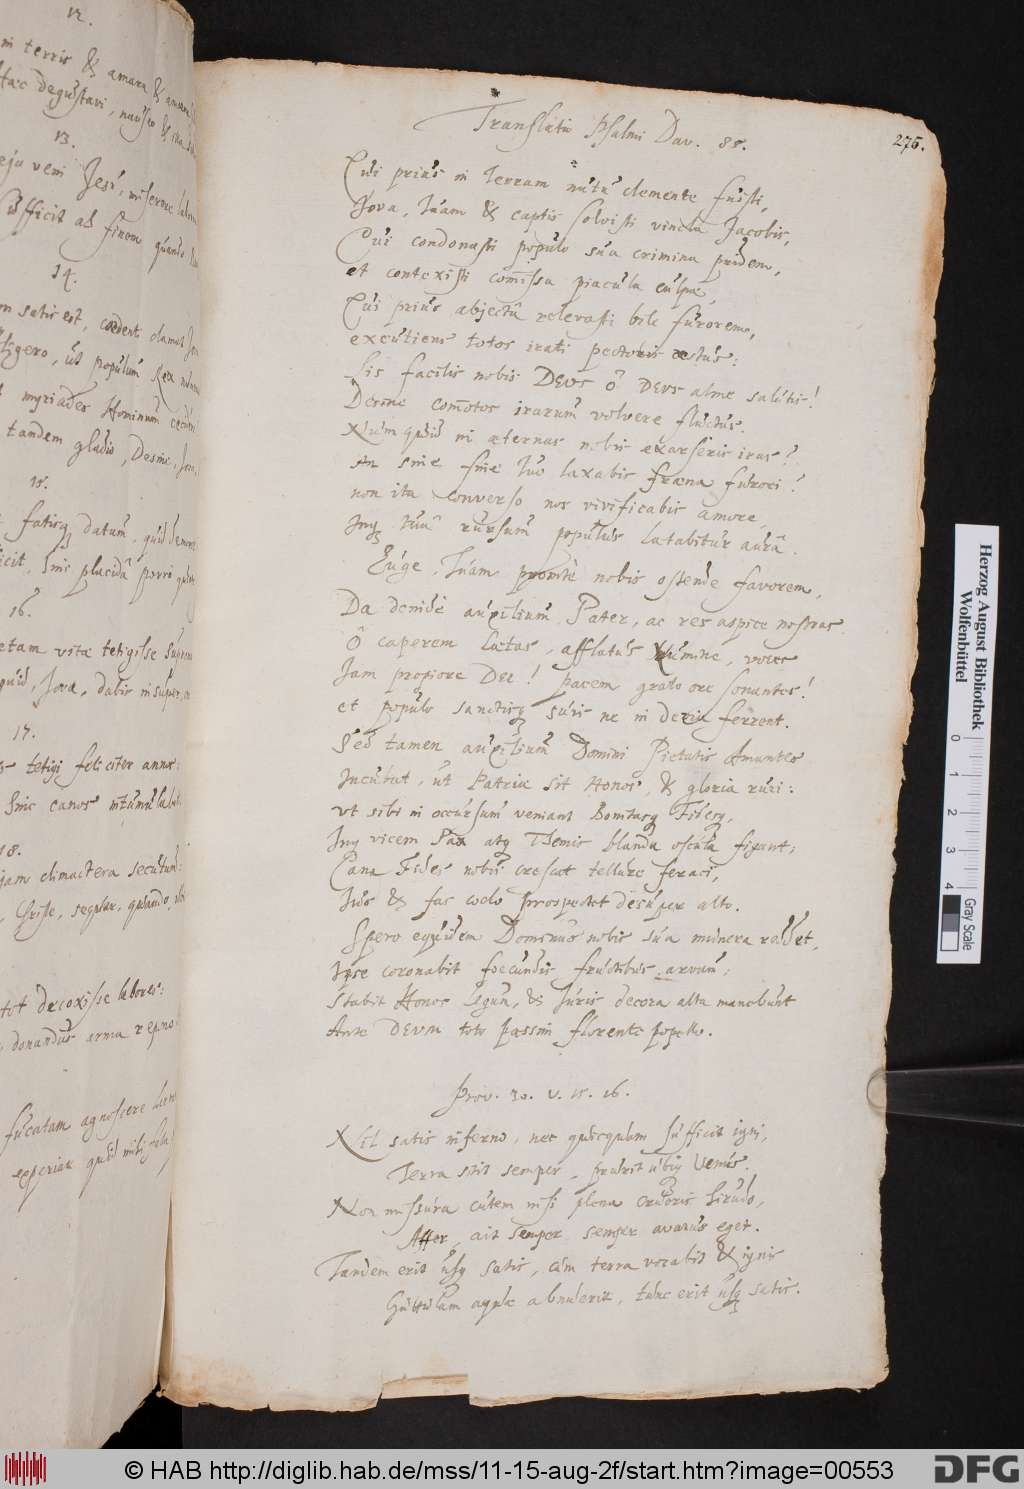 12.
in terris & amara &
Hæc degustavi, nauseo &
13.
veni Jesu, miserere
sufficit ad finem quando
14.
satis est, cædent clamat
ligero, ut populum Rex
myriades Hominum
tandem gladio, Desine, Jova
15.
fatisq datum, quid
Hinc placida porro
16.
vitæ tetigisse
quid, Jova, dabis insuper
17.
tetigi feliciter annos:
hinc canos
18.
jam climactera secutum:
Christe, sequar, quando
tot decoxisse labores:
donandus arma repno
fucatam agnoscere
experiar quid mihi
Translatio Psalmi Dav. 85.
275.
Cui prius in Terram nutu clemente fuisti,
Jova, Tuam & captis solvisti vincla Jacobis,
Cui condonasti populo sua crimina pridem,
et contexisti comissa piacula culpæ,
Cui prius abjectu relevasti bile furorem,
excutiens totos irati pectoris æstus:
Sis facilis nobis DEUS ô DEUS alme salutis!
Desine comotos irarum volvere fluctus.
Numquid in æternas nobis exarseris iras?
An sine fine tuo laxabis fræna furori?
non ita converso nos vivificabis amore,
Inq tuâ rursum populus lætabitur aurâ.
Euge, Tuam promtè nobis ostende favorem,
Da deniq auxilium Pater, ac res aspice nostras.
ô caperem lætas, afflatus Numine, voces
Jam propiore DEI! pacem grato ore sonantes!
et populo sanctisq suis ne in devia ferrent.
Sed tamen auxilium Domini Pietatis Amantes
Incubat, ut Patria sit Honos, & gloria ruri:
Ut sibi in occursum veniant Bonitasq Fidesq,
Inq vicem Pax atq Themis blanda oscula figant;
Cana Fides nobis crescat tellure feraci,
Jus & fas coelo prospectet desuper alto.
Spero equidem Dominus nobis sua munera reddet,
Ipse coronabit foecundis fructibus arvum;
Stabit Honos legum, & Juris decora alta manebunt
Ante DEUM toto passim florente popello.
Prov. 30. v. 15. 16.
Nil satis inferno, nec quicquam sufficit igni,
Terra sitit semper, prurit ubiq Venus.
Non missura cutem nisi plena cruoris hirudo,
Affer, ait semper semper avarus eget.
Tandem erit usq satis, cum terra vocabit & ignis
Guttulam aquæ abnuerit, tunc erit usq satis.
Herzog August Bibliothek
Wolfenbüttel
0 1 2 3 4
Gray Scale
© HAB http://diglib.hab.de/mss/11-15-aug-2f/start.htm?image=00553
DFG